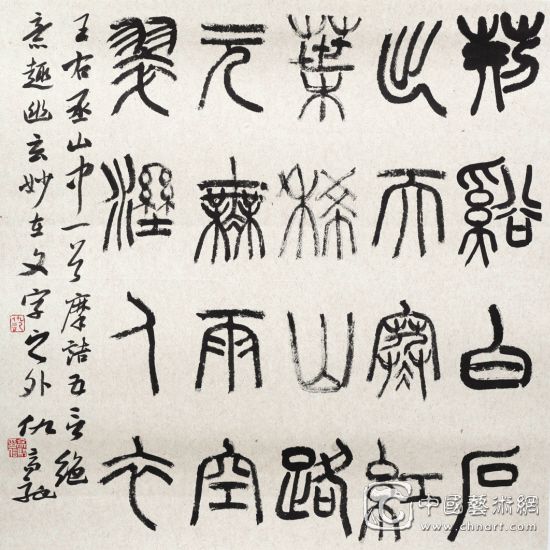 荆谿白石
出天寒紅
葉稀山路
元無雨空
翠溼人衣
王右丞山中一首摩詰五言絕
意趣幽玄妙在文字之外仇高馳
中國藝術網
www.chnart.com